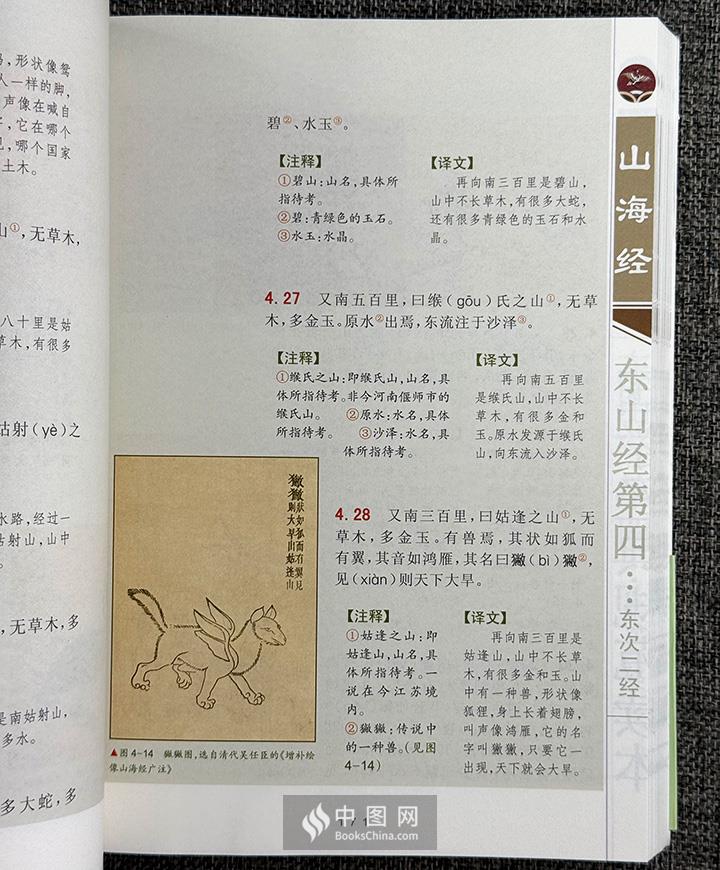 鸟，形状像鸳
人一样的脚，
声像在喊自
子，它在哪个
见，哪个国家
土木。
山①，无草木，
八十里是姑
草木，有很多
姑射（yè）之
水路，经过一
姑射山，山中
，无草木，多
是南姑射山，
多水。
多大蛇，多
碧②、水玉③。
【注释】
①碧山：山名，具体所
指待考。
②碧：青绿色的玉石。
③水玉：水晶。
【译文】
再向南三百里是碧山，
山中不长草木，有很多大蛇，
还有很多青绿色的玉石和水
晶。
4.27 又南五百里，曰缑（gōu）氏之山①，无草
木，多金玉。原水②出焉，东流注于沙泽③。
【注释】
①缑氏之山：即缑氏山，山名，具
体所指待考。非今河南偃师市的
缑氏山。 ②原水：水名，具体
所指待考。 ③沙泽：水名，具
体所指待考。
【译文】
再向南五百里
是缑氏山，山中不长
草木，有很多金和
玉。原水发源于缑氏
山，向东流入沙泽。
4.28 又南三百里，曰姑逢之山①，无
草木，多金玉。有兽焉，其状如狐而
有翼，其音如鸿雁，其名曰獙（bì）獙②，
见（xiàn）则天下大旱。
【注释】
①姑逢之山：即
姑逢山，山名，具
体所指待考。一
说在今江苏境
内。
②獙獙：传说中
的一种兽。（见图
4-14）
【译文】
再向南三百里是
姑逢山，山中不长草
木，有很多金和玉。山
中有一种兽，形状像
狐狸，身上长着翅膀，
叫声像鸿雁，它的名
字叫獙獙，只要它一
出现，天下就会大旱。
獙獙
状如狐而有翼见
则大旱出姑逢山
▲图4-14 獙獙图，选自清代吴任臣的《增补绘
像山海经广注》
山海经
东山经第四
东次二经
中图网
BooksChina.com